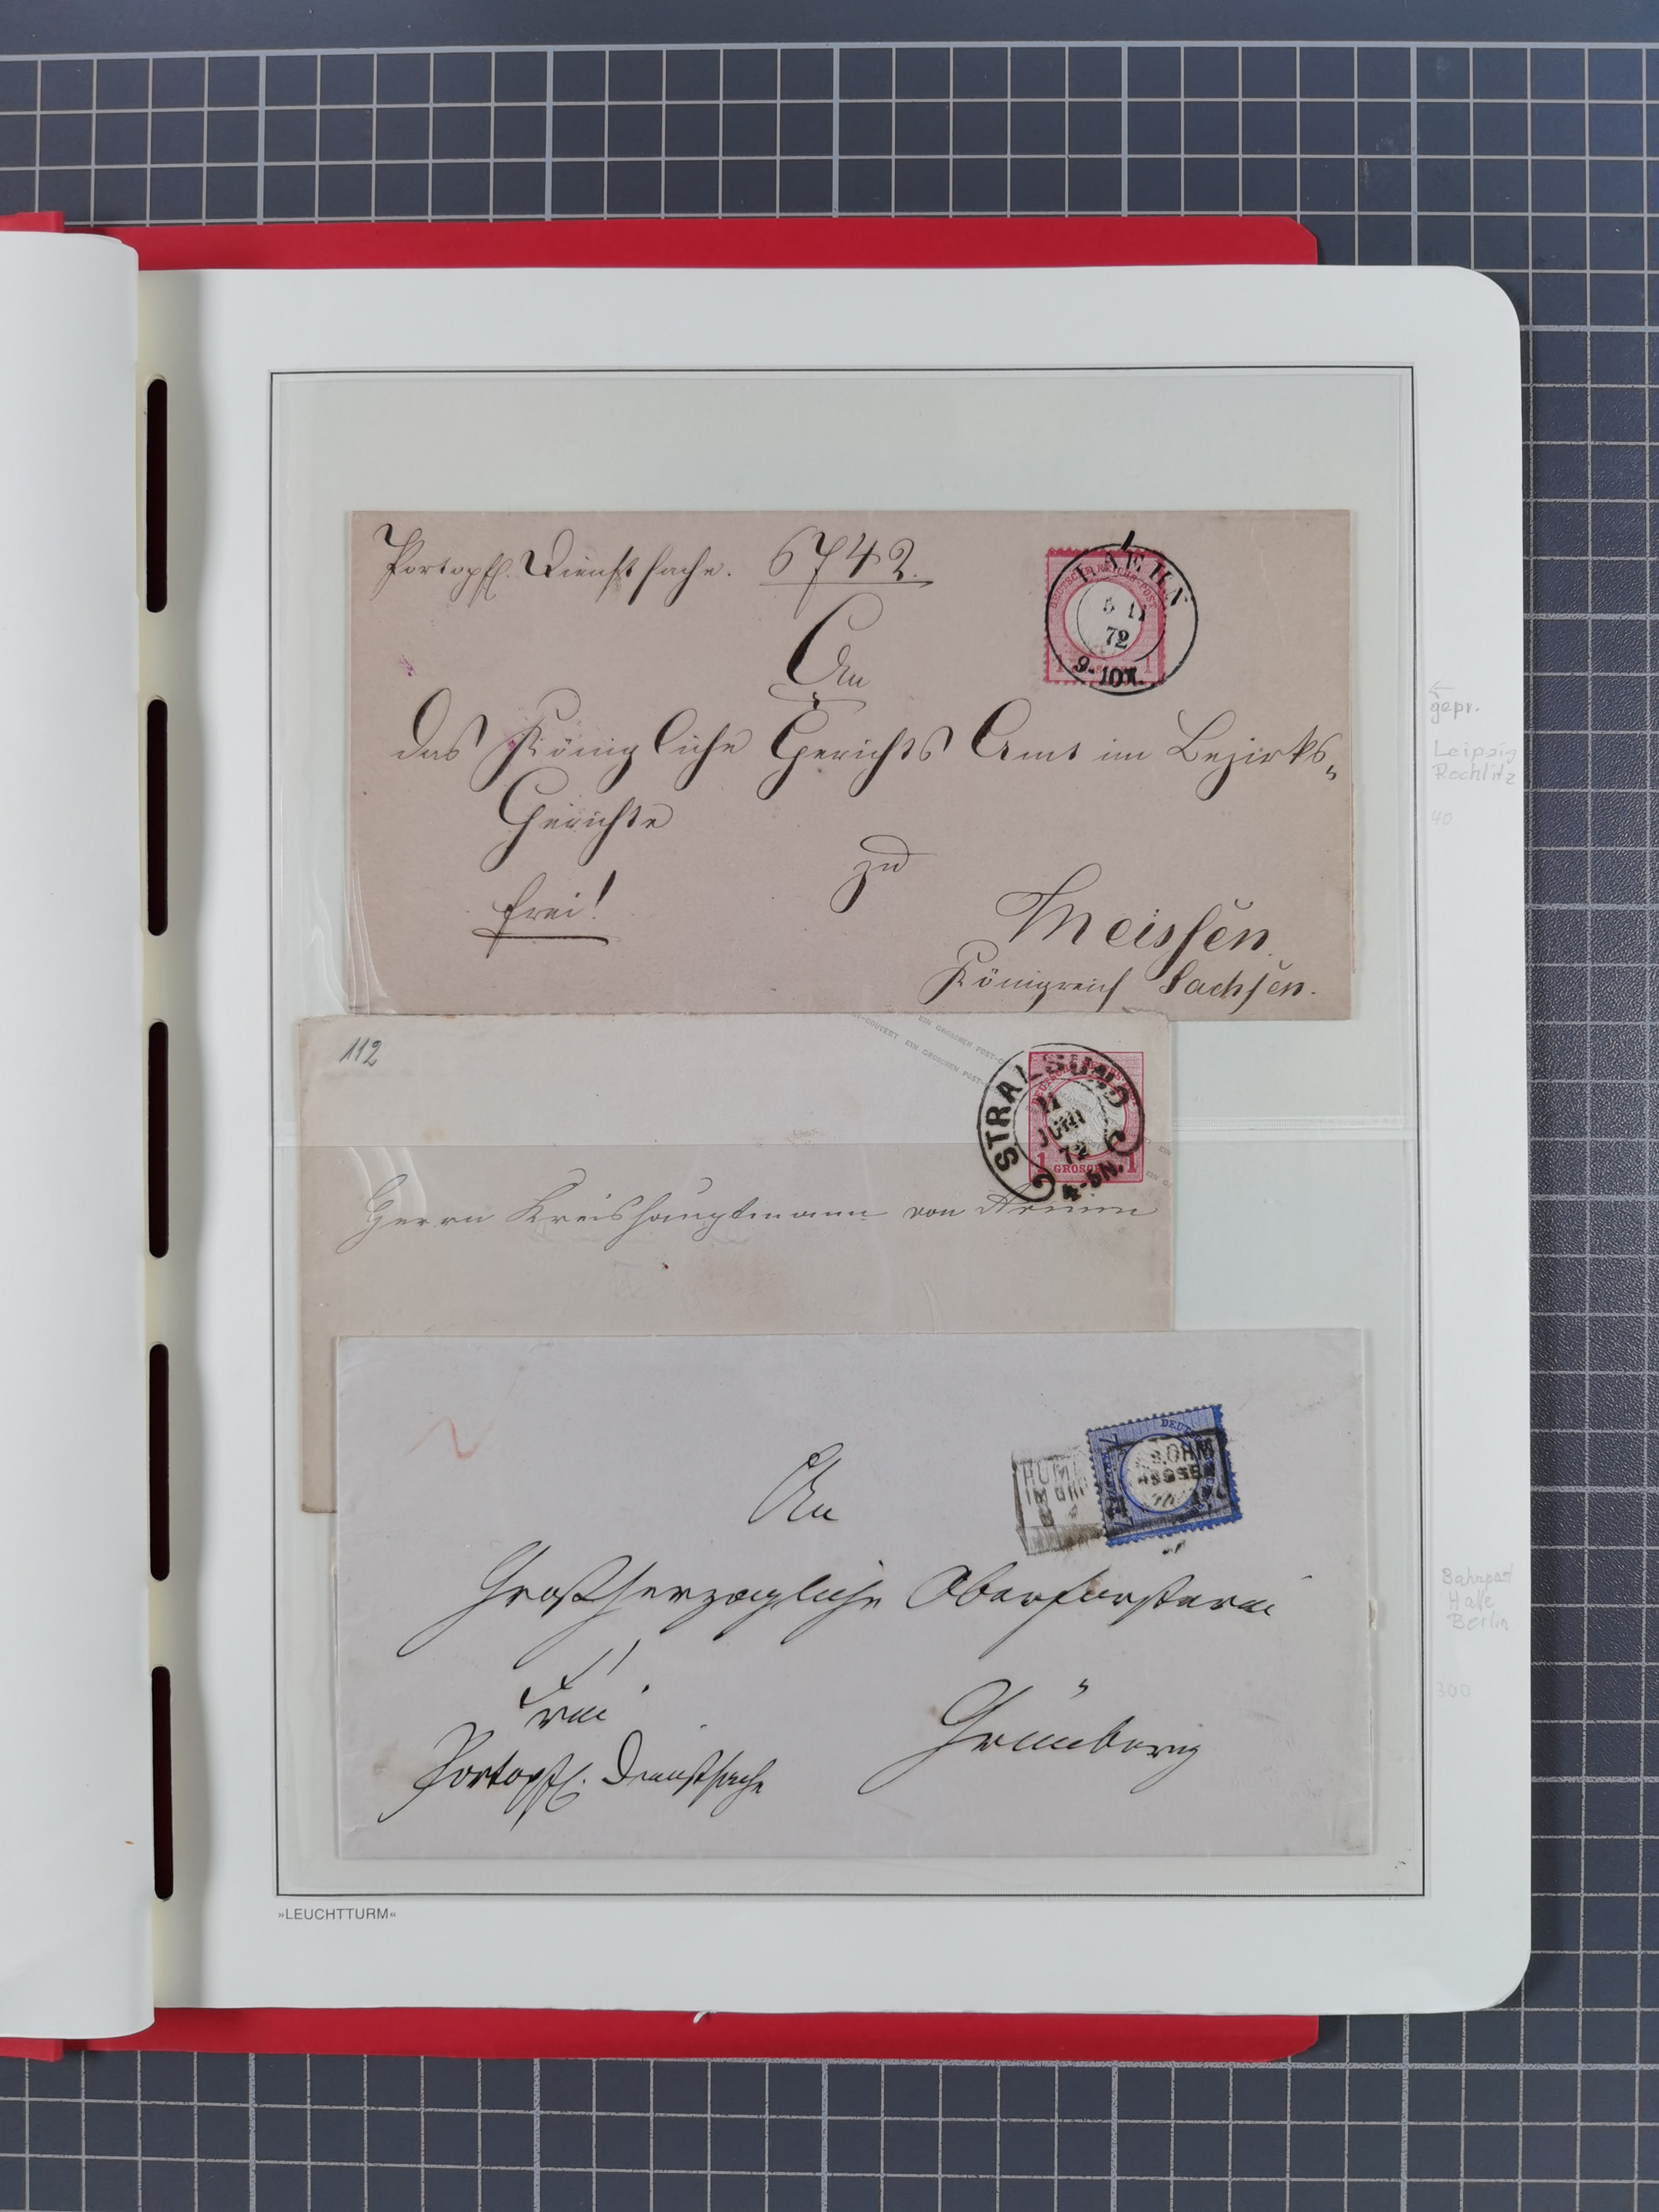 Portopfl. Dienstsache. 6742.
An
das Königliche Gerichts Amt im Bezirks-
Gerichte
zu
frei!
Meissen.
Königreich Sachsen.
DEUTSCHE REICHS-POST
1 1
5 11
72
9-10V.
gepr.
Leipzig
Rochlitz
40
112
EIN GROSCHEN POST-C
T-COUVERT EIN GROSCHEN POST-
STRALSUND
11
JUNI
72
4-5N.
1 GROSCHEN 1
Herrn Kreishauptmann von
An
Großherzogliche Oberförsterei
frei
Grünberg
Portopfl. Dienstsache
DEUT
Bahnpost
Halle
Berlin
300
»LEUCHTTURM«